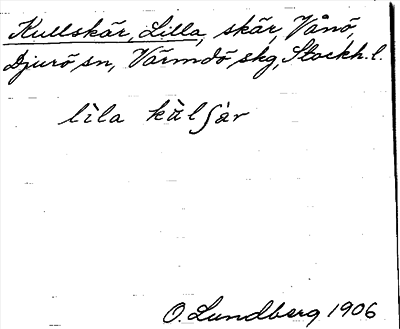 Kullskär, Lilla, skär, Vånö,
Djurö sn, Värmdö skg, Stockh. l.
lìla kälʃär
O. Lundberg 1906